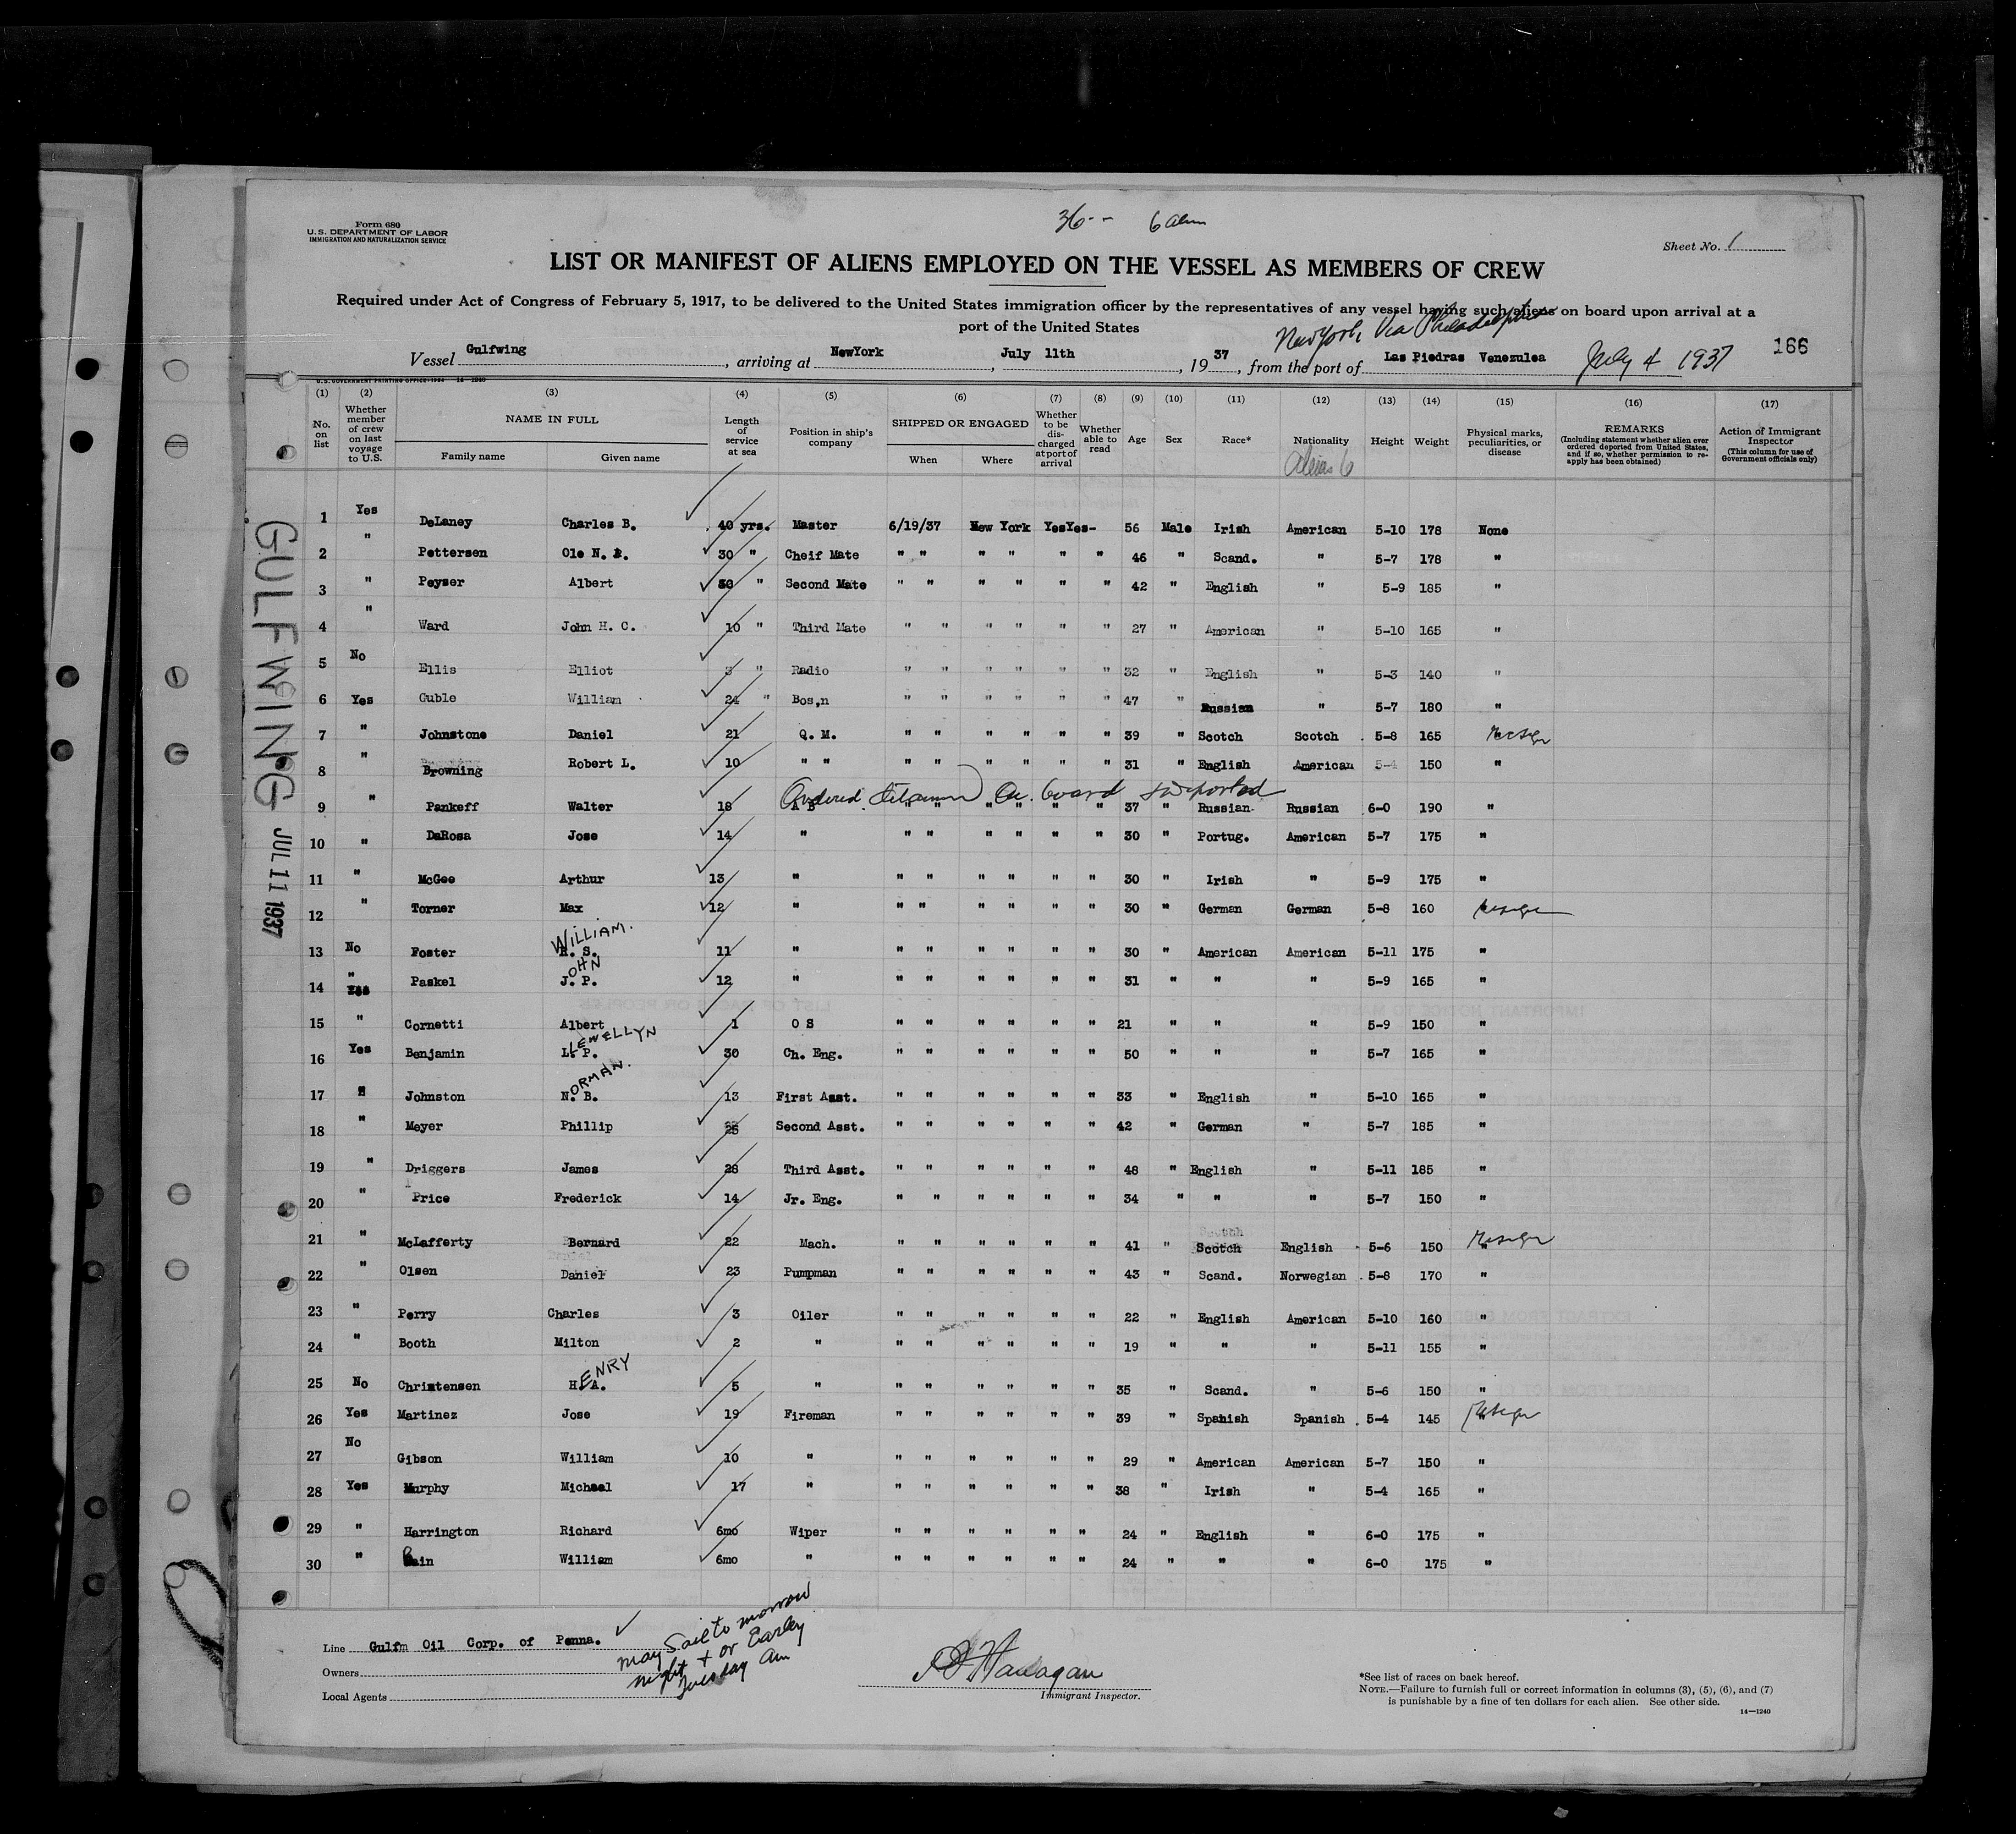 36-- 6 alien
Form 680
U.S. DEPARTMENT OF LABOR
IMMIGRATION AND NATURALIZATION SERVICE
Sheet No. 1
LIST OR MANIFEST OF ALIENS EMPLOYED ON THE VESSEL AS MEMBERS OF CREW
Required under Act of Congress of February 5, 1917, to be delivered to the United States immigration officer by the representatives of any vessel having such aliens on board upon arrival at a
port of the United States
New York Via Philadelphia
Vessel Gulfwing, arriving at NewYork, July 11th, 1937, from the port of Las Piedras Venezulea July 4 1937
166
U.S. GOVERNMENT PRINTING OFFICE: 1934 14-1240
(1) (2) (3) (4) (5) (6) (7) (8) (9) (10) (11) (12) (13) (14) (15) (16) (17)
No. on list
Whether member of crew on last voyage to U.S.
NAME IN FULL
Family name Given name
Length of service at sea
Position in ship's company
SHIPPED OR ENGAGED
When Where
Whether to be discharged at port of arrival
Whether able to read
Age
Sex
Race*
Nationality
Aliens 6
Height
Weight
Physical marks, peculiarities, or disease
REMARKS
(Including statement whether alien ever ordered deported from United States, and if so, whether permission to reapply has been obtained)
Action of Immigrant Inspector
(This column for use of Government officials only)
GULFWING JUL 11 1937
1 Yes DeLaney Charles B. 40 yrs. Master 6/19/37 New York Yes Yes- 56 Male Irish American 5-10 178 None
2 " Pettersen Ole N. 30 " Cheif Mate " " " " " " 46 " Scand. " 5-7 178 "
3 " Peyser Albert 30 " Second Mate " " " " " " 42 " English " 5-9 185 "
4 " Ward John H. C. 10 " Third Mate " " " " " " 27 " American " 5-10 165 "
5 No Ellis Elliot 3 " Radio " " " " " " 32 " English " 5-3 140 "
6 Yes Guble William 24 " Bos,n " " " " " " 47 " Russian " 5-7 180 "
7 " Johnstone Daniel 21 Q. M. " " " " " " 39 " Scotch Scotch 5-8 165 "
8 " Browning Robert L. 10 " " " " " " " " 31 " English American 5-4 150 "
Ordered detained on board
9 " Pankeff Walter 18 A B " " " " " " 37 " Russian Russian 6-0 190 "
10 " DaRosa Jose 14 " " " " " " " 30 " Portug. American 5-7 175 "
11 " McGee Arthur 13 " " " " " " " 30 " Irish " 5-9 175 "
12 " Torner Max 12 " " " " " " " 30 " German German 5-8 160
WILLIAM.
13 No Foster R. S. 11 " " " " " " " 30 " American American 5-11 175 "
OHN
14 " Yes Paskel J. P. 12 " " " " " " " 31 " " " 5-9 165 "
15 " Cornetti Albert 1 O S " " " " " " 21 " " " 5-9 150 "
LEWELLYN
16 Yes Benjamin L. P. 30 Ch. Eng. " " " " " " 50 " " " 5-7 165 "
ORMAN.
17 " Johnston N. B. 13 First Asst. " " " " " " 33 " English " 5-10 165 "
18 " Meyer Phillip 25 Second Asst. " " " " " " 42 " German " 5-7 185 "
19 " Driggers James 28 Third Asst. " " " " " " 48 " English " 5-11 185 "
20 " Price Frederick 14 Jr. Eng. " " " " " " 34 " " " 5-7 150 "
21 " McLafferty Bernard 22 Mach. " " " " " " 41 " Scotch English 5-6 150 "
22 " Olsen Daniel 23 Pumpman " " " " " " 43 " Scand. Norwegian 5-8 170 "
23 " Perry Charles 3 Oiler " " " " " " 22 " English American 5-10 160 "
24 " Booth Milton 2 " " " " " " " 19 " " " 5-11 155 "
ENRY
25 No Christensen H. A. 5 " " " " " " " 35 " Scand. " 5-6 150 "
26 Yes Martinez Jose 19 Fireman " " " " " " 39 " Spanish Spanish 5-4 145 "
27 No Gibson William 10 " " " " " " " 29 " American American 5-7 150 "
28 Yes Murphy Michael 17 " " " " " " " 38 " Irish " 5-4 165 "
29 " Harrington Richard 6mo Wiper " " " " " " 24 " English " 6-0 175 "
30 " William 6mo " " " " " " " 24 " " " 6-0 175 "
Line Gulfm Oil Corp. of Penna.
Owners
Local Agents
may Sail to morrow
night + or Earley
Tuesday Am
Immigrant Inspector.
*See list of races on back hereof.
NOTE.—Failure to furnish full or correct information in columns (3), (5), (6), and (7)
is punishable by a fine of ten dollars for each alien. See other side.
14—1240